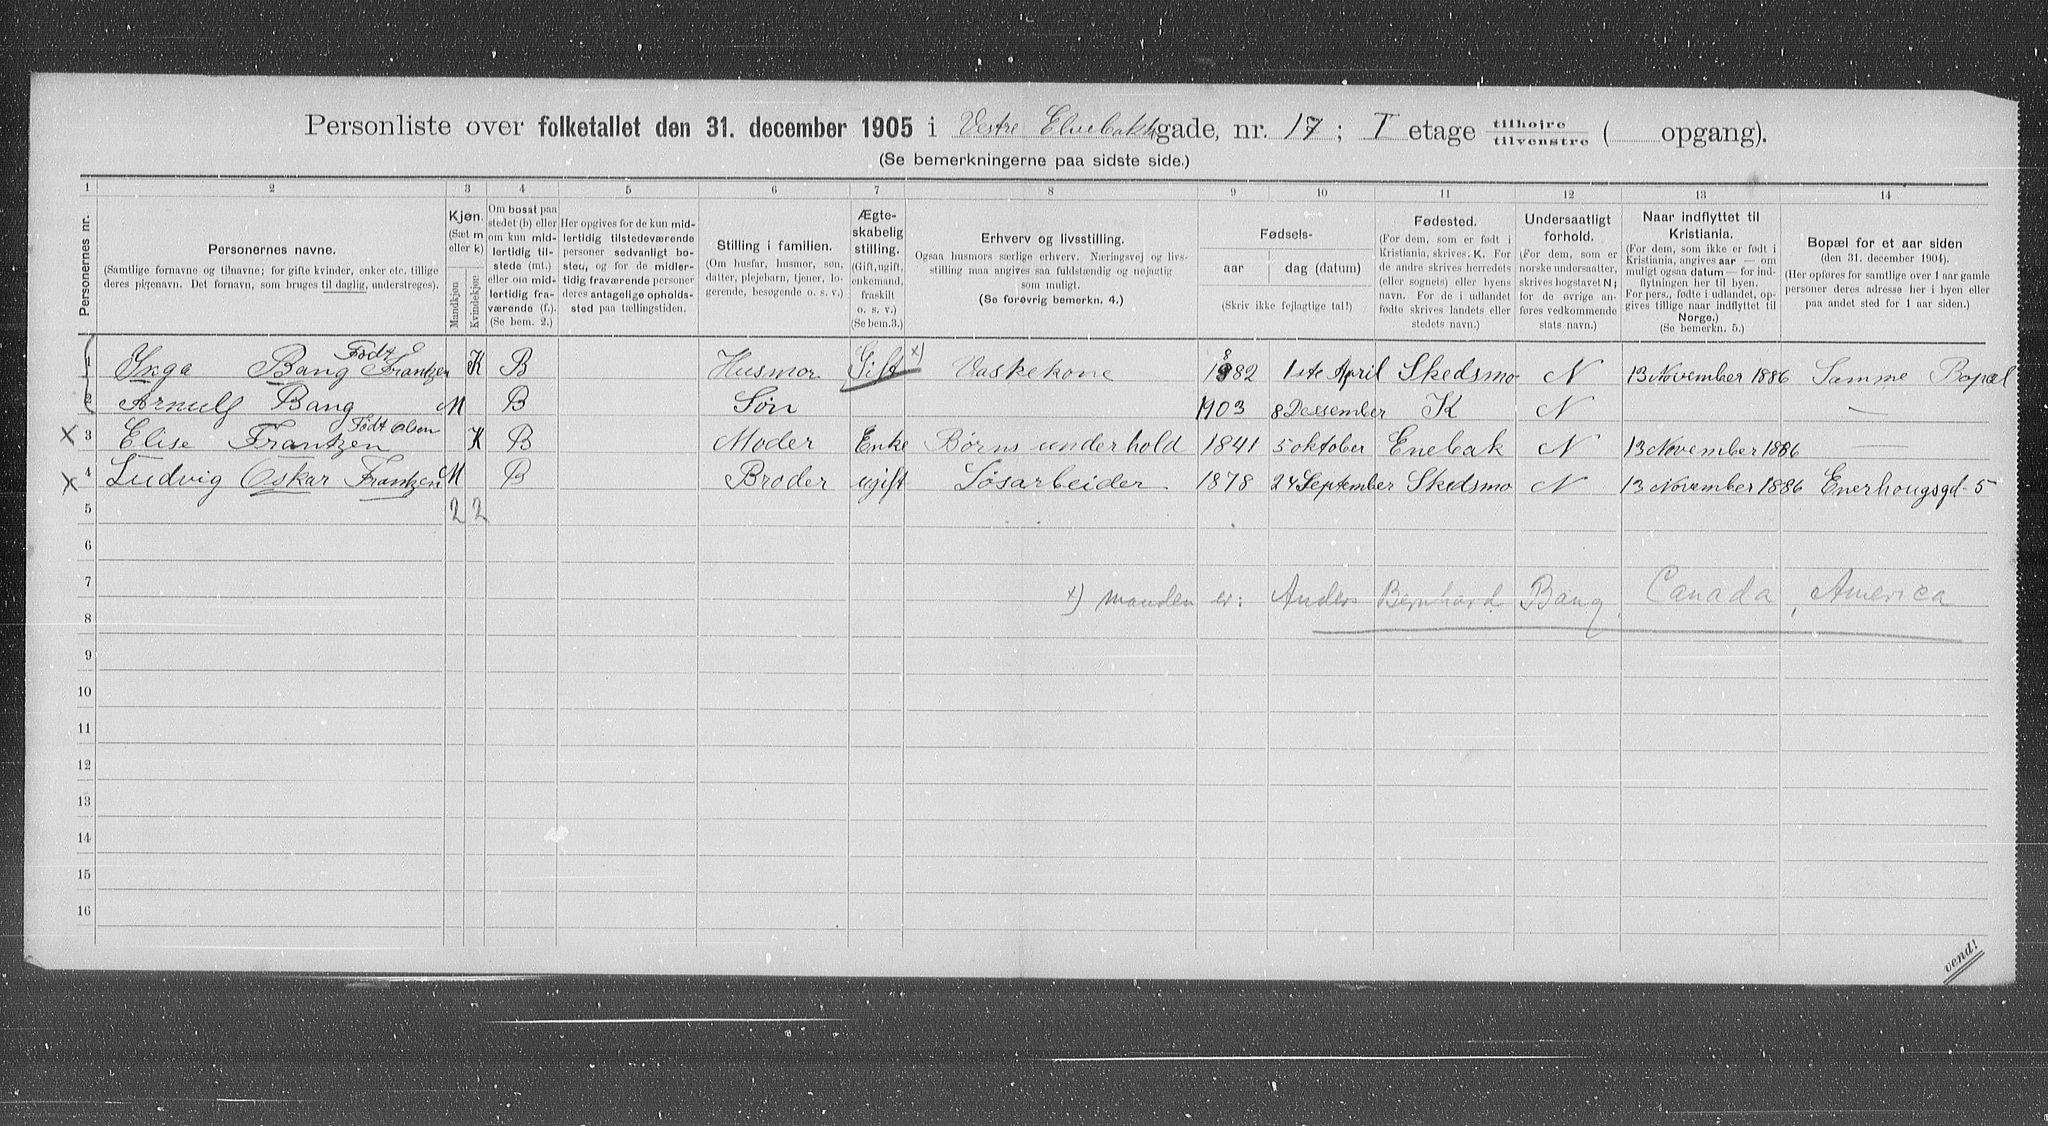 Personliste over folketallet den 31. december 1905 i Vestre Elvebakkegade, nr. 17; I etage tilhøjre tilvenstre ( opgang).
(Se bemerkningerne paa sidste side.)
1 2 3 4 5 6 7 8 9 10 11 12 13 14
Personernes nr.
Personernes navne.
(Samtlige fornavne og tilnavne; for gifte kvinder, enker etc. tillige
deres pigenavn. Det fornavn, som bruges til daglig, understreges).
Kjøn.
(Sæt m
eller k)
Mandkjøn
Kvindekjøn
Om bosat paa
stedet (b) eller
om kun mid-
lertidig til-
stede (mt.)
eller om mid-
lertidig fra-
værende (f.).
(Se bem. 2.)
Her opgives for de kun mid-
lertidig tilstedeværende
personer sedvanligt bo-
sted, og for de midler-
tidig fraværende personer
deres antagelige opholds-
sted paa tællingstiden.
Stilling i familien.
(Om husfar, husmor, søn,
datter, plejebarn, tjener, lo-
gerende, besøgende o. s. v.)
Ægte-
skabelig
stilling.
(Gift, ugift,
enkemand,
fraskilt
o. s. v.)
(Se bem.3.)
Erhverv og livsstilling.
Ogsaa husmors særlige erhverv. Næringsvej og livs-
stilling maa angives saa fuldstændig og nøjagtig
som muligt.
(Se forøvrig bemerkn. 4.)
Fødsels-
aar dag (datum)
(Skriv ikke fejlagtige tal!)
Fødested.
(For dem, som er født i
Kristiania, skrives K. For
de andre skrives herredets
(eller sognets) eller byens
navn. For de i udlandet
fødte skrives landets eller
stedets navn.)
Undersaatligt
forhold.
(For dem, som er
norske undersaatter,
skrives bogstavet N;
for de øvrige an-
føres vedkommende
stats navn.)
Naar indflyttet til
Kristiania.
(For dem, som ikke er født i
Kristiania, angives aar — om
muligt ogsaa datum — for ind-
flytningen her til byen.
For pers., fødte i udlandet, op-
gives tillige naar indflyttet til
Norge.)
(Se bemerkn. 5.)
Bopæl for et aar siden
(den 31. december 1904).
(Her opføres for samtlige over 1 aar gamle
personer deres adresse her i byen eller
paa andet sted for 1 aar siden.)
1 Inga Bang Født Frantzen K B Husmor Gift x) Vaskekone 1882 1ste April Skedsmo N 13 November 1886 Samme Bopæl
2 Arnulf Bang M B Søn 1903 8 Dessember K N —
x 3 Elise Frantzen Født Olsen K B Moder Enke Børns underhold 1841 5 oktober Enebak N 13 November 1886 —
x 4 Ludvig Oskar Frantzen M B Broder ugift Løsarbeider 1878 24 September Skedsmo N 13 November 1886 Enerhougsgd. 5
5 2 2
6
7
x) manden er: Anders Bernhard Bang, Canada, America
8
9
10
11
12
13
14
15
16
vend!